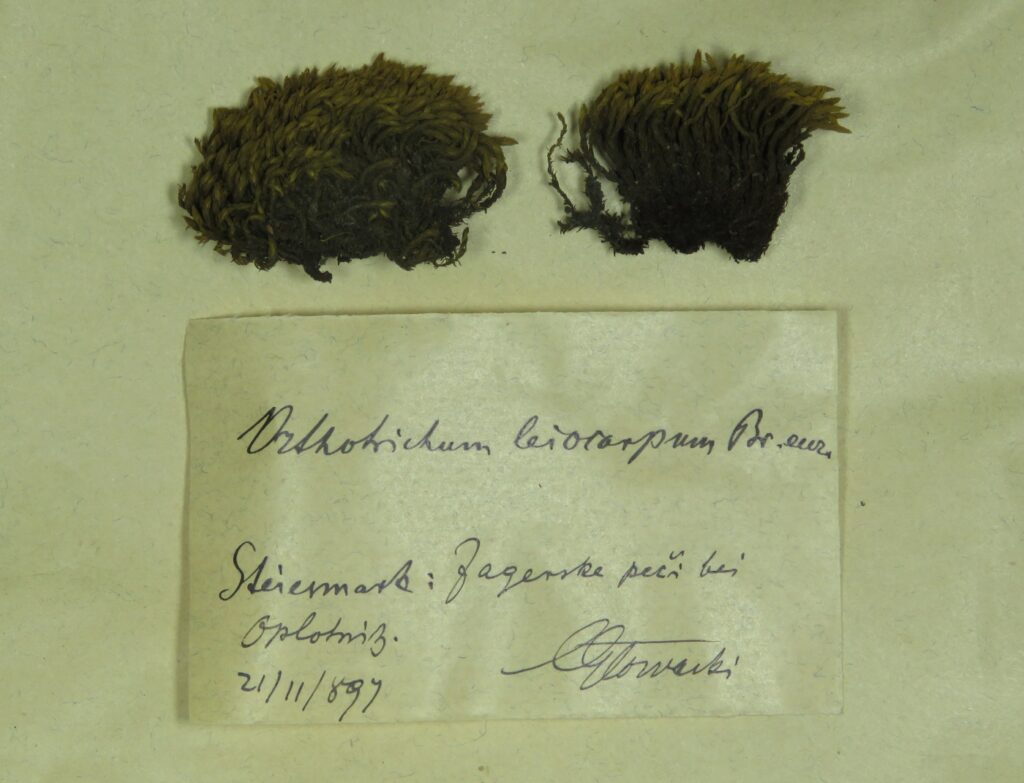 Orthotrichum leiocarpum Br. eur.
Steiermark: Zagerske peči bei
Oplotnitz.
21/11/897
Głowacki